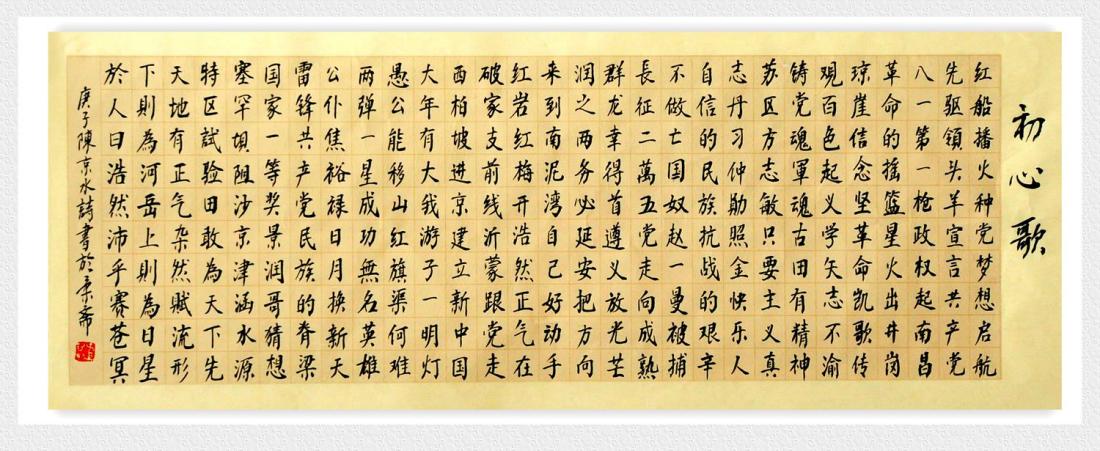 初心歌
红船播火种党梦想启航
先驱領头羊宣言共产党
八一第一枪政权起南昌
革命的摇篮星火出井岗
琼崖信念坚革命凯歌传
观百色起义学矢志不渝
铸党魂軍魂古田有精神
苏区方志敏只要主义真
志丹习仲勛照金快乐人
自信的民族抗战的艰辛
不做亡国奴赵一曼被捕
長征二萬五党走向成熟
群龙幸得首遵义放光芒
润之两务必延安把方向
来到南泥湾自己好动手
红岩红梅开浩然正气在
破家支前线沂蒙跟党走
西柏坡进京建立新中国
大年有大我游子一明灯
愚公能移山红旗渠何难
两弹一星成功無名英雄
公仆焦裕禄日月换新天
雷锋共产党民族的脊梁
国家一等奖景润哥猜想
塞罕坝阻沙京津涵水源
特区試验田敢為天下先
天地有正气杂然赋流形
下則為河岳上則為日星
於人曰浩然沛乎赛苍冥
庚子陳京水詩書於